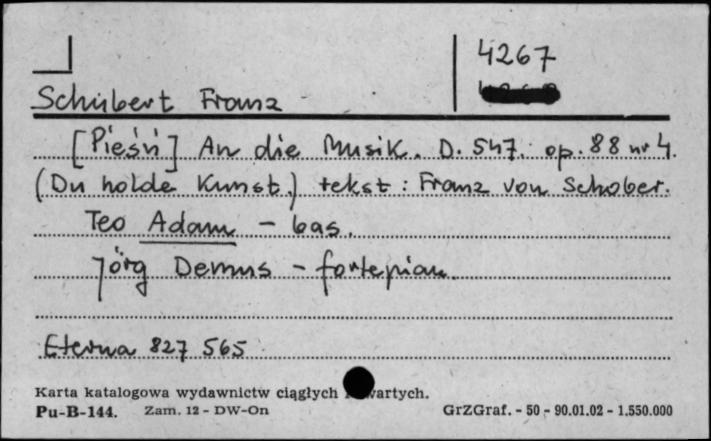 4267
Schubert Franz
[Pieśń] An die Musik. D. 547. op. 88 nr 4.
(Du holde Kunst.) tekst: Franz von Schober.
Teo Adam - bas.
Jörg Demus - fortepian.
Eterna 827 565
Karta katalogowa wydawnictw ciągłych wartych.
Pu-B-144. Zam. 12 - DW-On GrZGraf. - 50 - 90.01.02 - 1.550.000